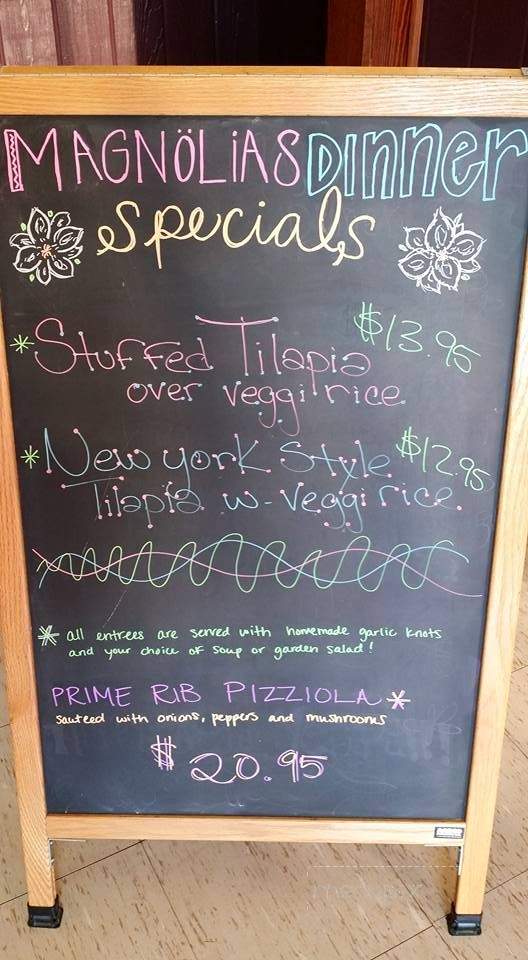 MAGNÖLiAS DInner
specials
* Stuffed Tilapia $13.95
over veggi rice
* New york Style $12.95
Tilapia w- veggi rice
* all entrees are served with homemade garlic knots
and your choice of soup or garden salad!
PRIME RIB PIZZIOLA *
sauteed with onions, peppers and mushrooms
$ 20.95